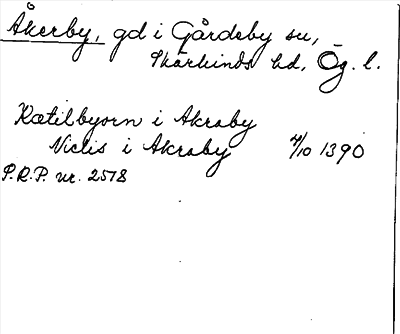 Åkerby, gd i Gårdeby sn,
Skärkinds hd, Ög. l.
Kætilbyorn i Akraby
Niclis i Akraby 4/10 1390
P.R.P. nr. 2578